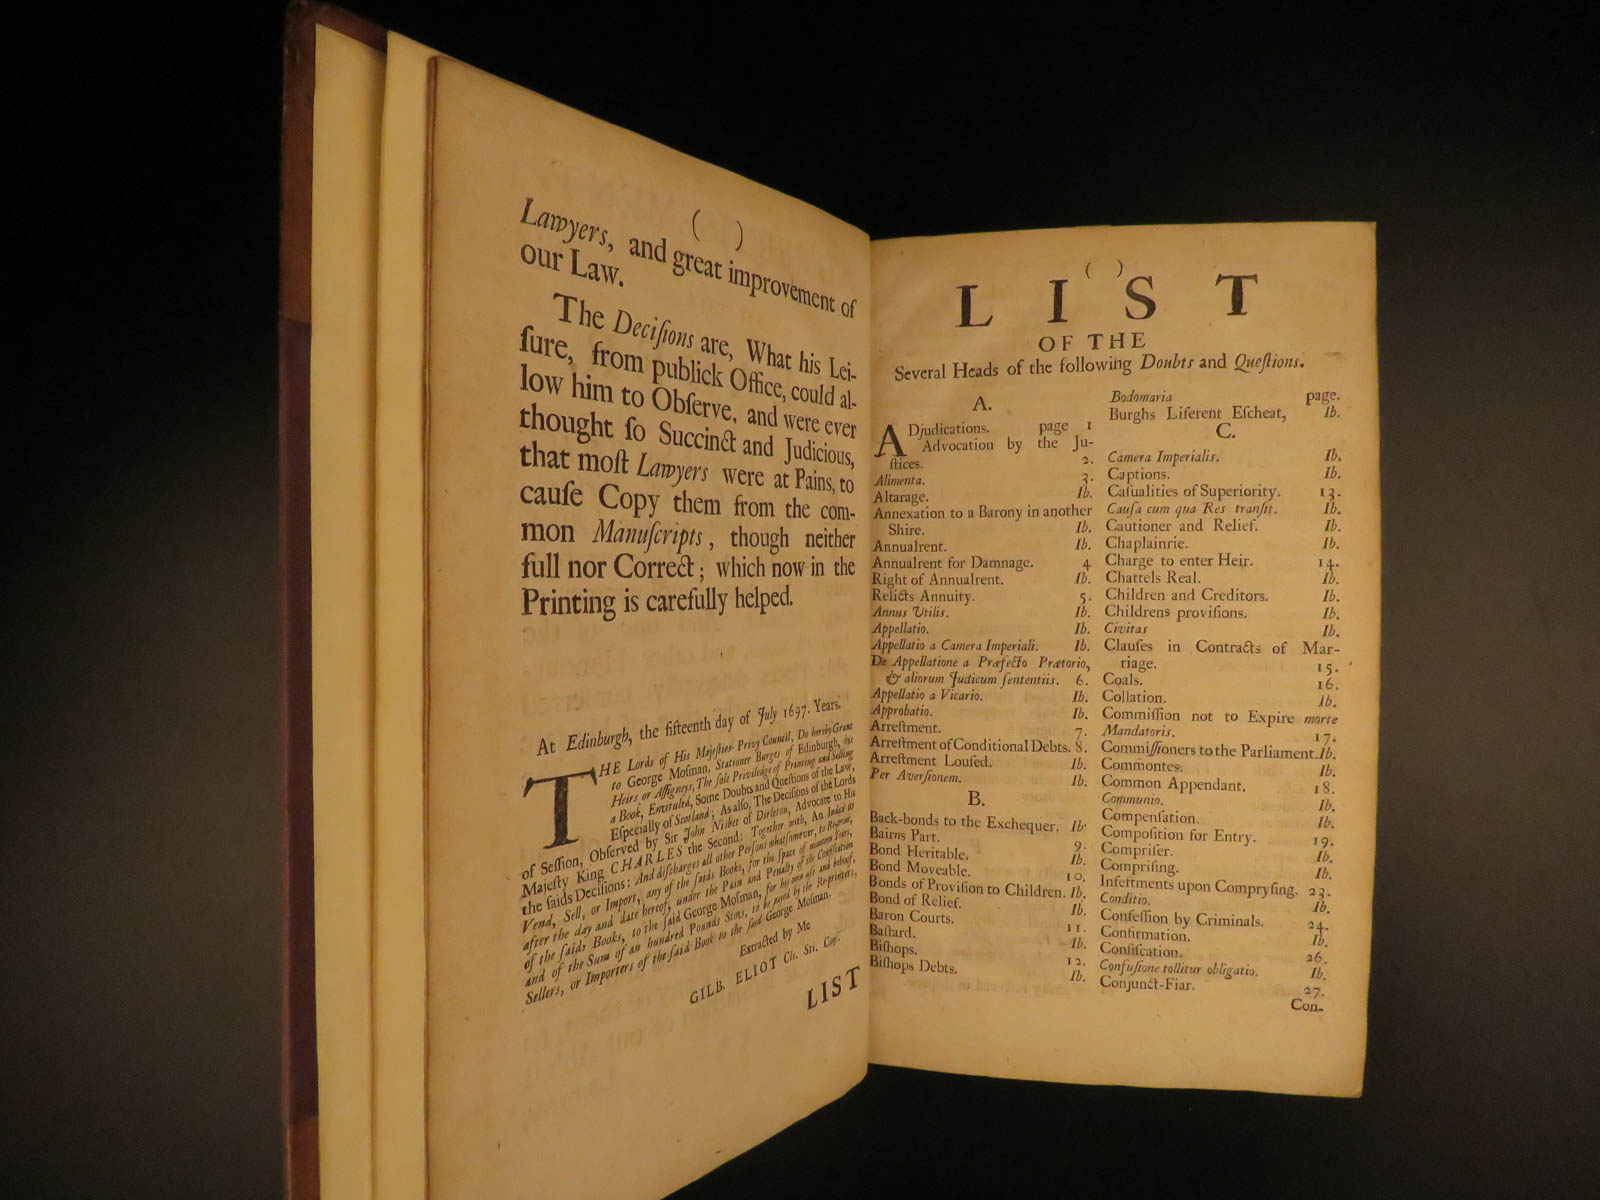 ( )
Lawyers, and great improvement of
our Law.
The Deciſions are, What his Lei-
ſure, from publick Office, could al-
low him to Obſerve, and were ever
thought ſo Succinct and Judicious,
that moſt Lawyers were at Pains, to
cauſe Copy them from the com-
mon Manuſcripts, though neither
full nor Correct; which now in the
Printing is carefully helped.
At Edinburgh, the fifteenth day of July 1697. Years.
THE Lords of His Majeſties Privy Council, Do hereby Grant
to George Moſman, Stationer Burges of Edinburgh, his
Heirs or Aſſigneys, The ſole Priviledge of Printing and Selling
a Book, Entituled, Some Doubts and Queſtions of the Law,
Eſpecially of Scotland; As alſo, The Deciſions of the Lords
of Seſſion, Obſerved by Sir John Nisbet of Dirleton, Advocate to His
Majeſty King CHARLES the Second: Together with, An Index to
the ſaids Deciſions: And diſcharges all other Perſons whatſomever, to Re-print,
Vend, Sell, or Import, any of the ſaids Books, for the ſpace of nineteen Years,
after the day and date hereof, under the Pain and Penalty of the Confiſcation
of the ſaids Books, to the ſaid George Moſman, for his own uſe and behoof,
and of the Sum of an hundred Pounds Scots, to be payed by the Re-printers,
Sellers, or Importers of the ſaid Book to the ſaid George Moſman.
Extracted by Me
GILB. ELIOT Cls. Sti. Conſ.
LIST
( )
LIST
OF THE
Several Heads of the following Doubts and Queſtions.
A.
ADjudications. page 1
Advocation by the Ju-
ſtices. 2.
Alimenta. 3.
Altarage. Ib.
Annexation to a Barony in another
Shire. Ib.
Annualrent. Ib.
Annualrent for Damnage. 4
Right of Annualrent. Ib.
Relicts Annuity. 5.
Annus Utilis. Ib.
Appellatio. Ib.
Appellatio a Camera Imperiali. Ib.
De Appellatione a Præfecto Prætorio,
& aliorum Judicum ſententiis. 6.
Appellatio a Vicario. Ib.
Approbatio. Ib.
Arreſtment. 7.
Arreſtment of Conditional Debts. 8.
Arreſtment Louſed. Ib.
Per Averſionem. Ib.
B.
Back-bonds to the Exchequer. Ib.
Bairns Part. 9.
Bond Heritable. Ib.
Bond Moveable. 10.
Bonds of Proviſion to Children. Ib.
Bond of Relief. Ib.
Baron Courts. 11.
Baſtard. Ib.
Biſhops. 12.
Biſhops Debts. Ib.
Bodomaria page.
Burghs Liferent Eſcheat, Ib.
C.
Camera Imperialis. Ib.
Captions. Ib.
Caſualities of Superiority. 13.
Cauſa cum qua Res tranſit. Ib.
Cautioner and Relief. Ib.
Chaplainrie. Ib.
Charge to enter Heir. 14.
Chattels Real. Ib.
Children and Creditors. Ib.
Childrens proviſions. Ib.
Civitas Ib.
Clauſes in Contracts of Mar-
riage. 15.
Coals. 16.
Collation. Ib.
Commiſſion not to Expire morte
Mandatoris. 17.
Commiſſioners to the Parliament. Ib.
Commontes. Ib.
Common Appendant. 18.
Communio. Ib.
Compenſation. Ib.
Compoſition for Entry. 19.
Compriſer. Ib.
Compriſing. Ib.
Infeftments upon Compryſing. 23.
Conditio. Ib.
Confeſſion by Criminals. 24.
Confirmation. Ib.
Confiſcation. 26.
Confuſione tollitur obligatio. Ib.
Conjunct-Fiar. 27.
Con-